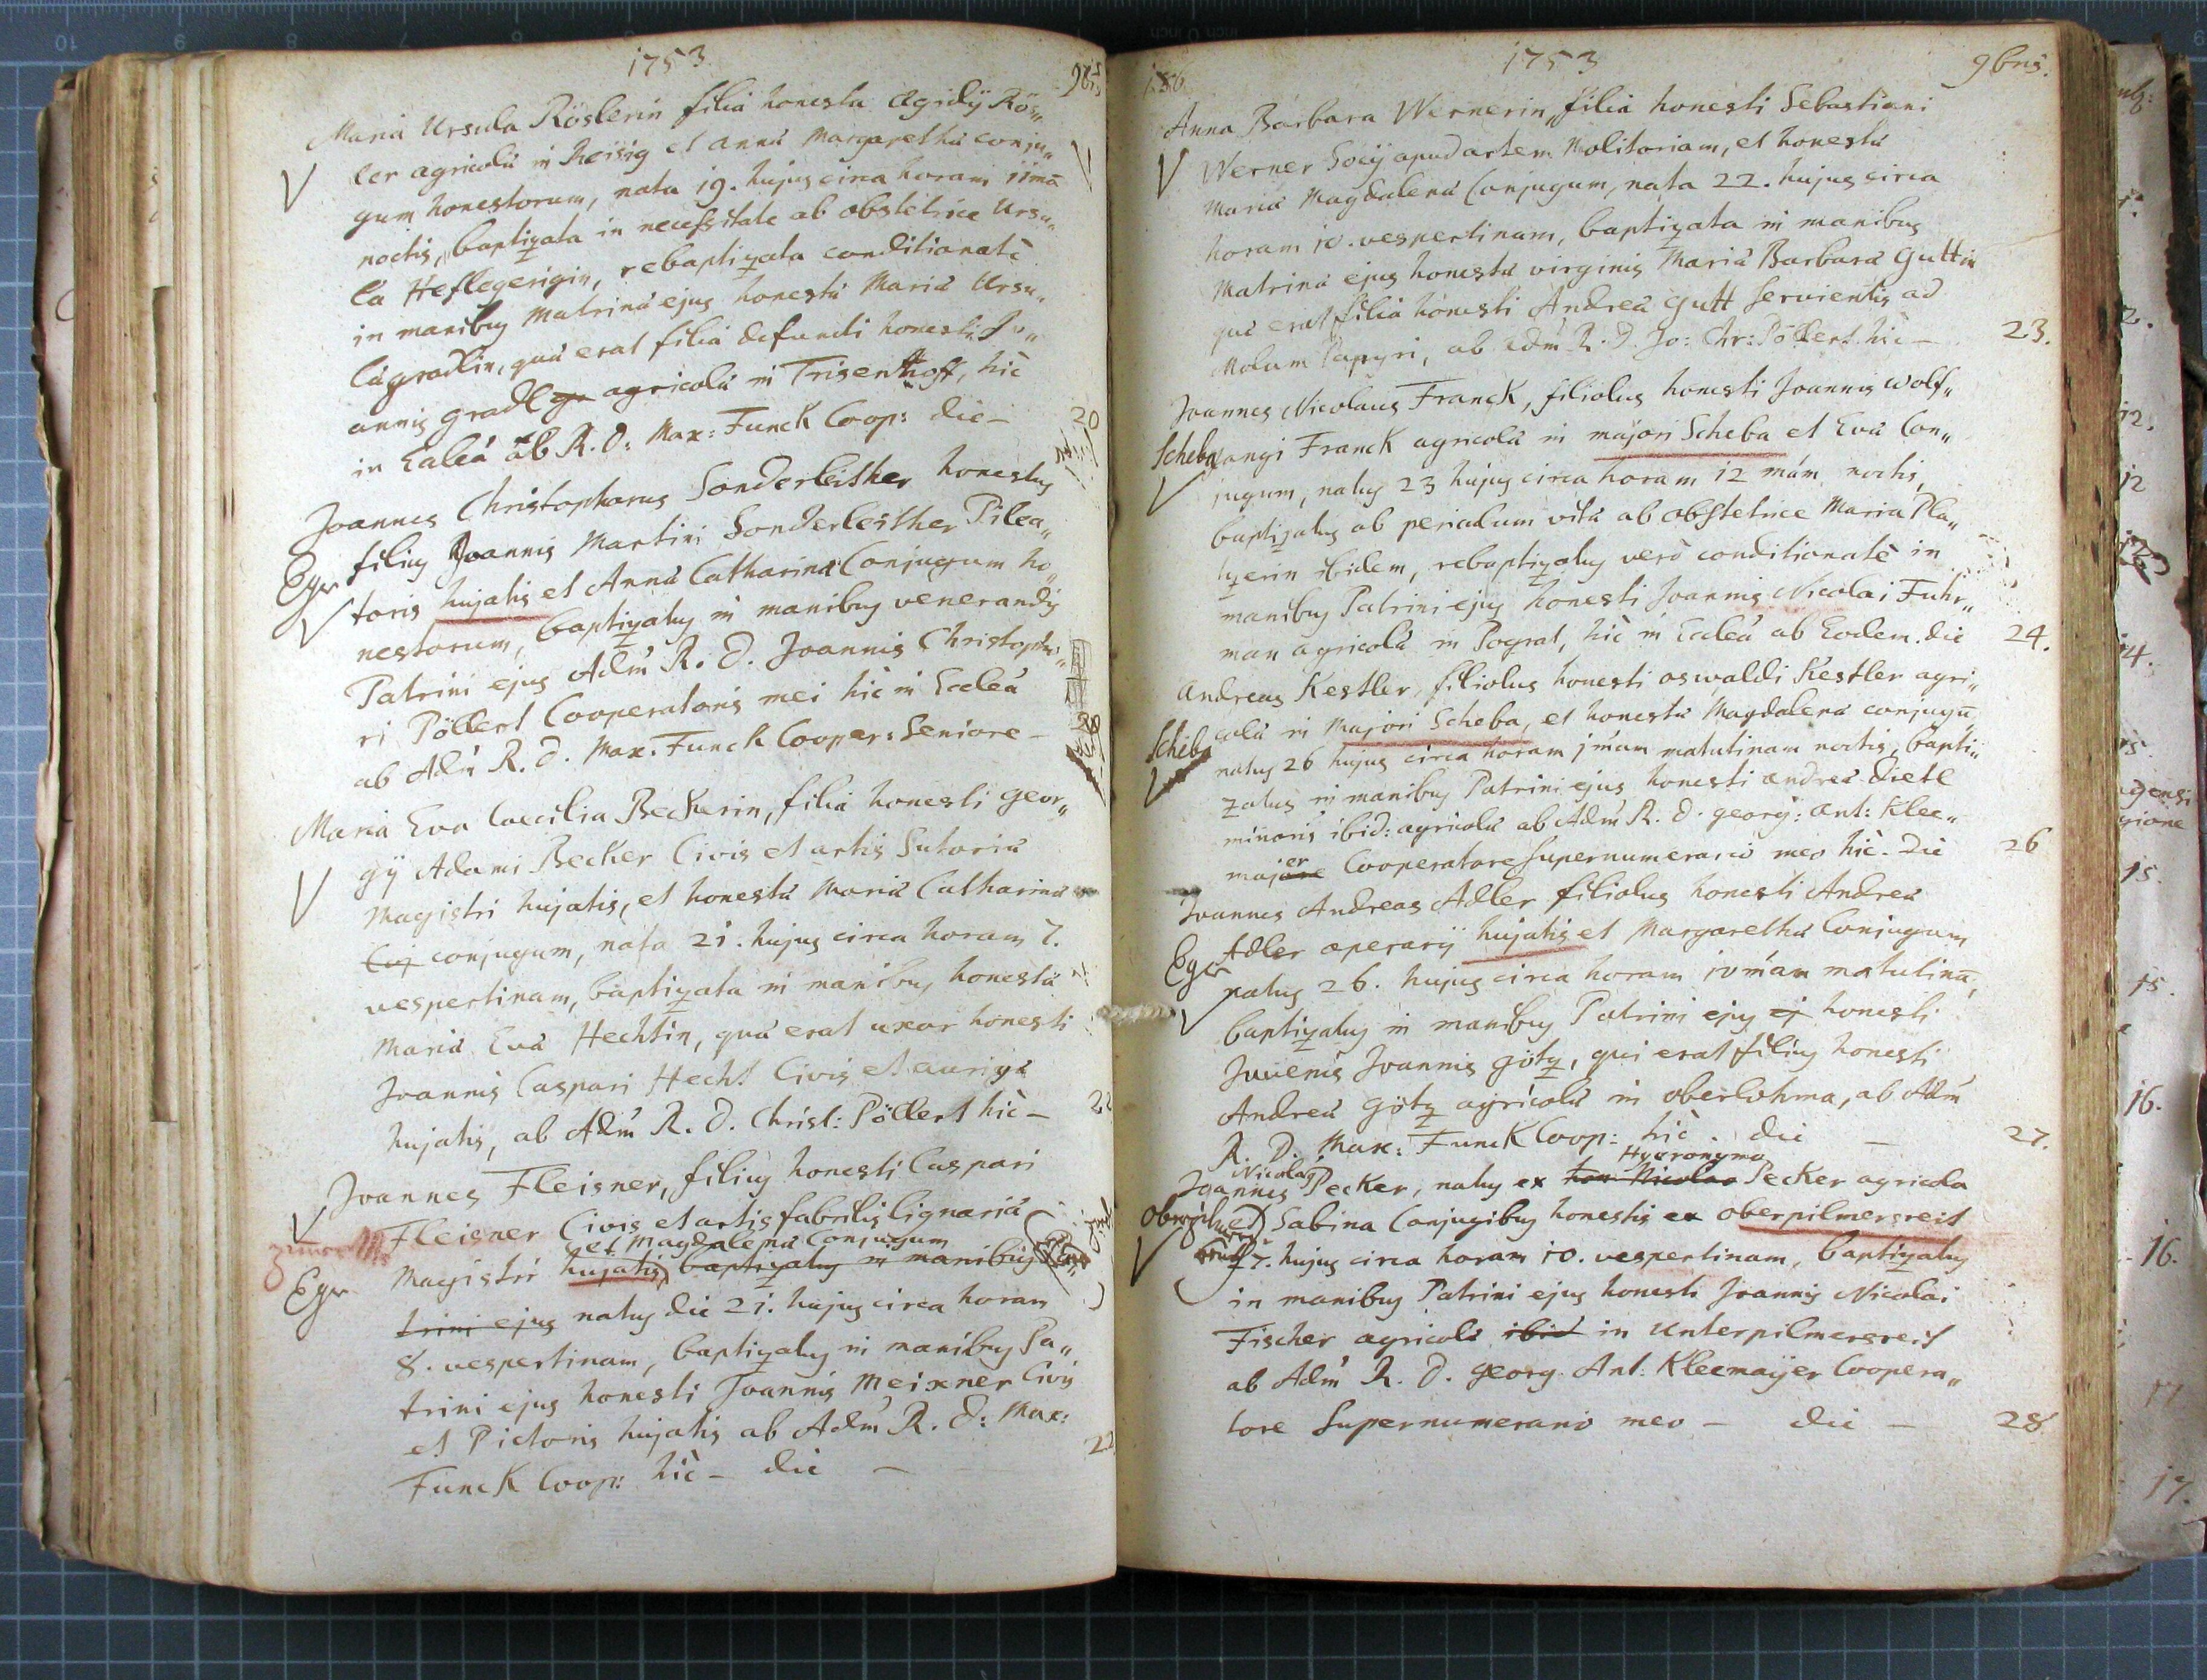 1753
9bris
Maria Ursula Röslerin filia honesta Ægidÿ Rös„
ler agricolæ in Reisig et Annæ Margarethæ conju„
gum honestorum, nata 19. hujus circa horam 11mã
noctis, baptizata in necessitate ab obstetrice Ursu„
la Heflegerigin, rebaptizata conditionatè
in manibus Matrinæ ejus honestæ Mariæ Ursu„
læ gradlin, quæ erat filia defuncti honesti Jo„
annis gradl agricolæ in Trisenhoff, hic
in Ecaleâ ab R. D: Max: Funck Coop: die – 20
Joannes Christophorus Sonderleither honestus
Eger filius Joannis Martini Sonderleither Pilea„
toris hujatis et Annæ Catharinæ Conjugum ho„
nestorum, baptizatus in manibus venerandis
Patrini ejus Adm̃ R. D. Joannis Christopho„
ri Pöllert Cooperatoris mei hic in Ecaleâ
ab Adm̃ R. D. Max: Funck Cooper: Seniore –
Maria Eva Caecilia Beckerin, filia honesti geor„
gÿ Adami Becker Civis et artis Sutoriæ
Magistri hujatis, et honestæ Mariæ Catharinæ
Cuj conjugum, nata 21. hujus circa horam 7.
vespertinam, baptizata in manibus honestæ
Mariæ Evæ Hechtin, quæ erat uxor honesti
Joannis Caspari Hecht Civis et aurigæ
hujatis, ab Adm̃ R. D. Christ: Pöllert hic – 22
Joannes Fleisner, filius honesti Caspari
Fleisner Civis et artis fabrilis lignariæ
et Magdalenæ Conjugum
Eger Magistri hujatis, baptizatus in manibus Pa„
trini ejus natus die 21. hujus circa horam
8. vespertinam, baptizatus in manibus Pa„
trini ejus honesti Joannis Meixner Civis
et Pictoris hujatis ab Adm̃ R. D: Max:
Funck Coop: hic – die – 22
1753
9bris.
Anna Barbara Wernerin, filia honesti Sebastiani
Werner Socÿ apud artem Molitoriam, et honestæ
Mariæ Magdalenæ Conjugum, nata 22. hujus circa
horam 10. vespertinam, baptizata in manibus
Matrinæ ejus honestæ virginis Mariæ Barbaræ Guttin
quæ erat filia honesti Andreæ Gutt servientis ad
Molam Papyri, ab adm̃ R. D. Jo: Chr: Pöllert hic – 23.
Joannes Nicolaus Franck, filiolus honesti Joannis Wolf„
Scheba gangi Franck agricolæ in majori Scheba et Evæ Con„
jugum, natus 23 hujus circa horam 12 mám noctis,
baptizatus ob periculum vitæ ab obstetrice Maria Pla„
tzerin ibidem, rebaptizatus verò conditionatè in
manibus Patrini ejus honesti Joannis Nicolai Fuhr„
man agricolæ in Pograt, hic in Ecaleâ ab Eodem. die 24.
Andreas Kestler, filiolus honesti Oswaldi Kestler agri„
Scheba colæ in Majori Scheba, et honestæ Magdalenæ conjugũ
natus 26 hujus circa horam jmam matutinam noctis, bapti„
zatus in manibus Patrini ejus honesti Andreæ Dietl
minoris ibid: agricolæ ab Adm̃ R. D. georg: Ant: Klee„
er
majore Cooperatore supernumerario meo hic. Die 26
Joannes Andreas Adler filiolus honesti Andreæ
Eger Adler operarÿ hujatis et Margarethæ Conjugum
natus 26. hujus circa horam 10mam matutinã,
baptizatus in manibus Patrini ejus ej honesti
Juvenis Joannis götz, qui erat filius honesti
Andreæ Götz agricolæ in oberlohma, ab Adm̃
R. D. Max: Funck Coop: hic. die – 27.
Nicolaus Hyeronymo
Joannes Pecker, natus ex hon Nicolao Pecker agricola
et Sabina Conjugibus honestis ex Oberpilmersreit
27. hujus circa horam 10. vespertinam, baptizatus
in manibus Patrini ejus honesti Joannis Nicolai
Fischer agricolæ ibid in Unterpilmersreit
ab Adm̃ R. D. Georg. Ant: Kleemaÿer Coopera„
tore Supernumerario meo – die – 28